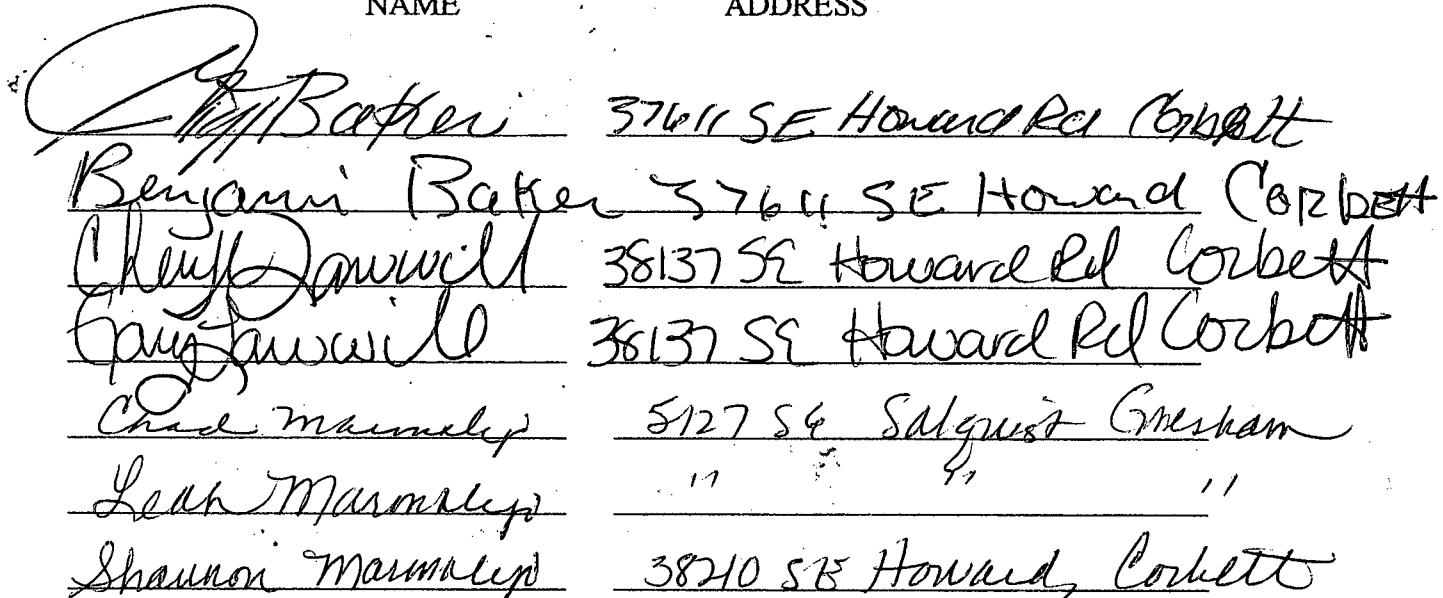 NAME ADDRESS
Baker 37611 SE Howard Rd Corbett
Benjamin Baker 37611 SE Howard Corbett
Cheryl 38137 SE Howard Rd Corbett
Gary 38137 SE Howard Rd Corbett
Chad 5127 SE Salquist Gresham
Leah " " "
Shannon 38210 SE Howard, Corbett